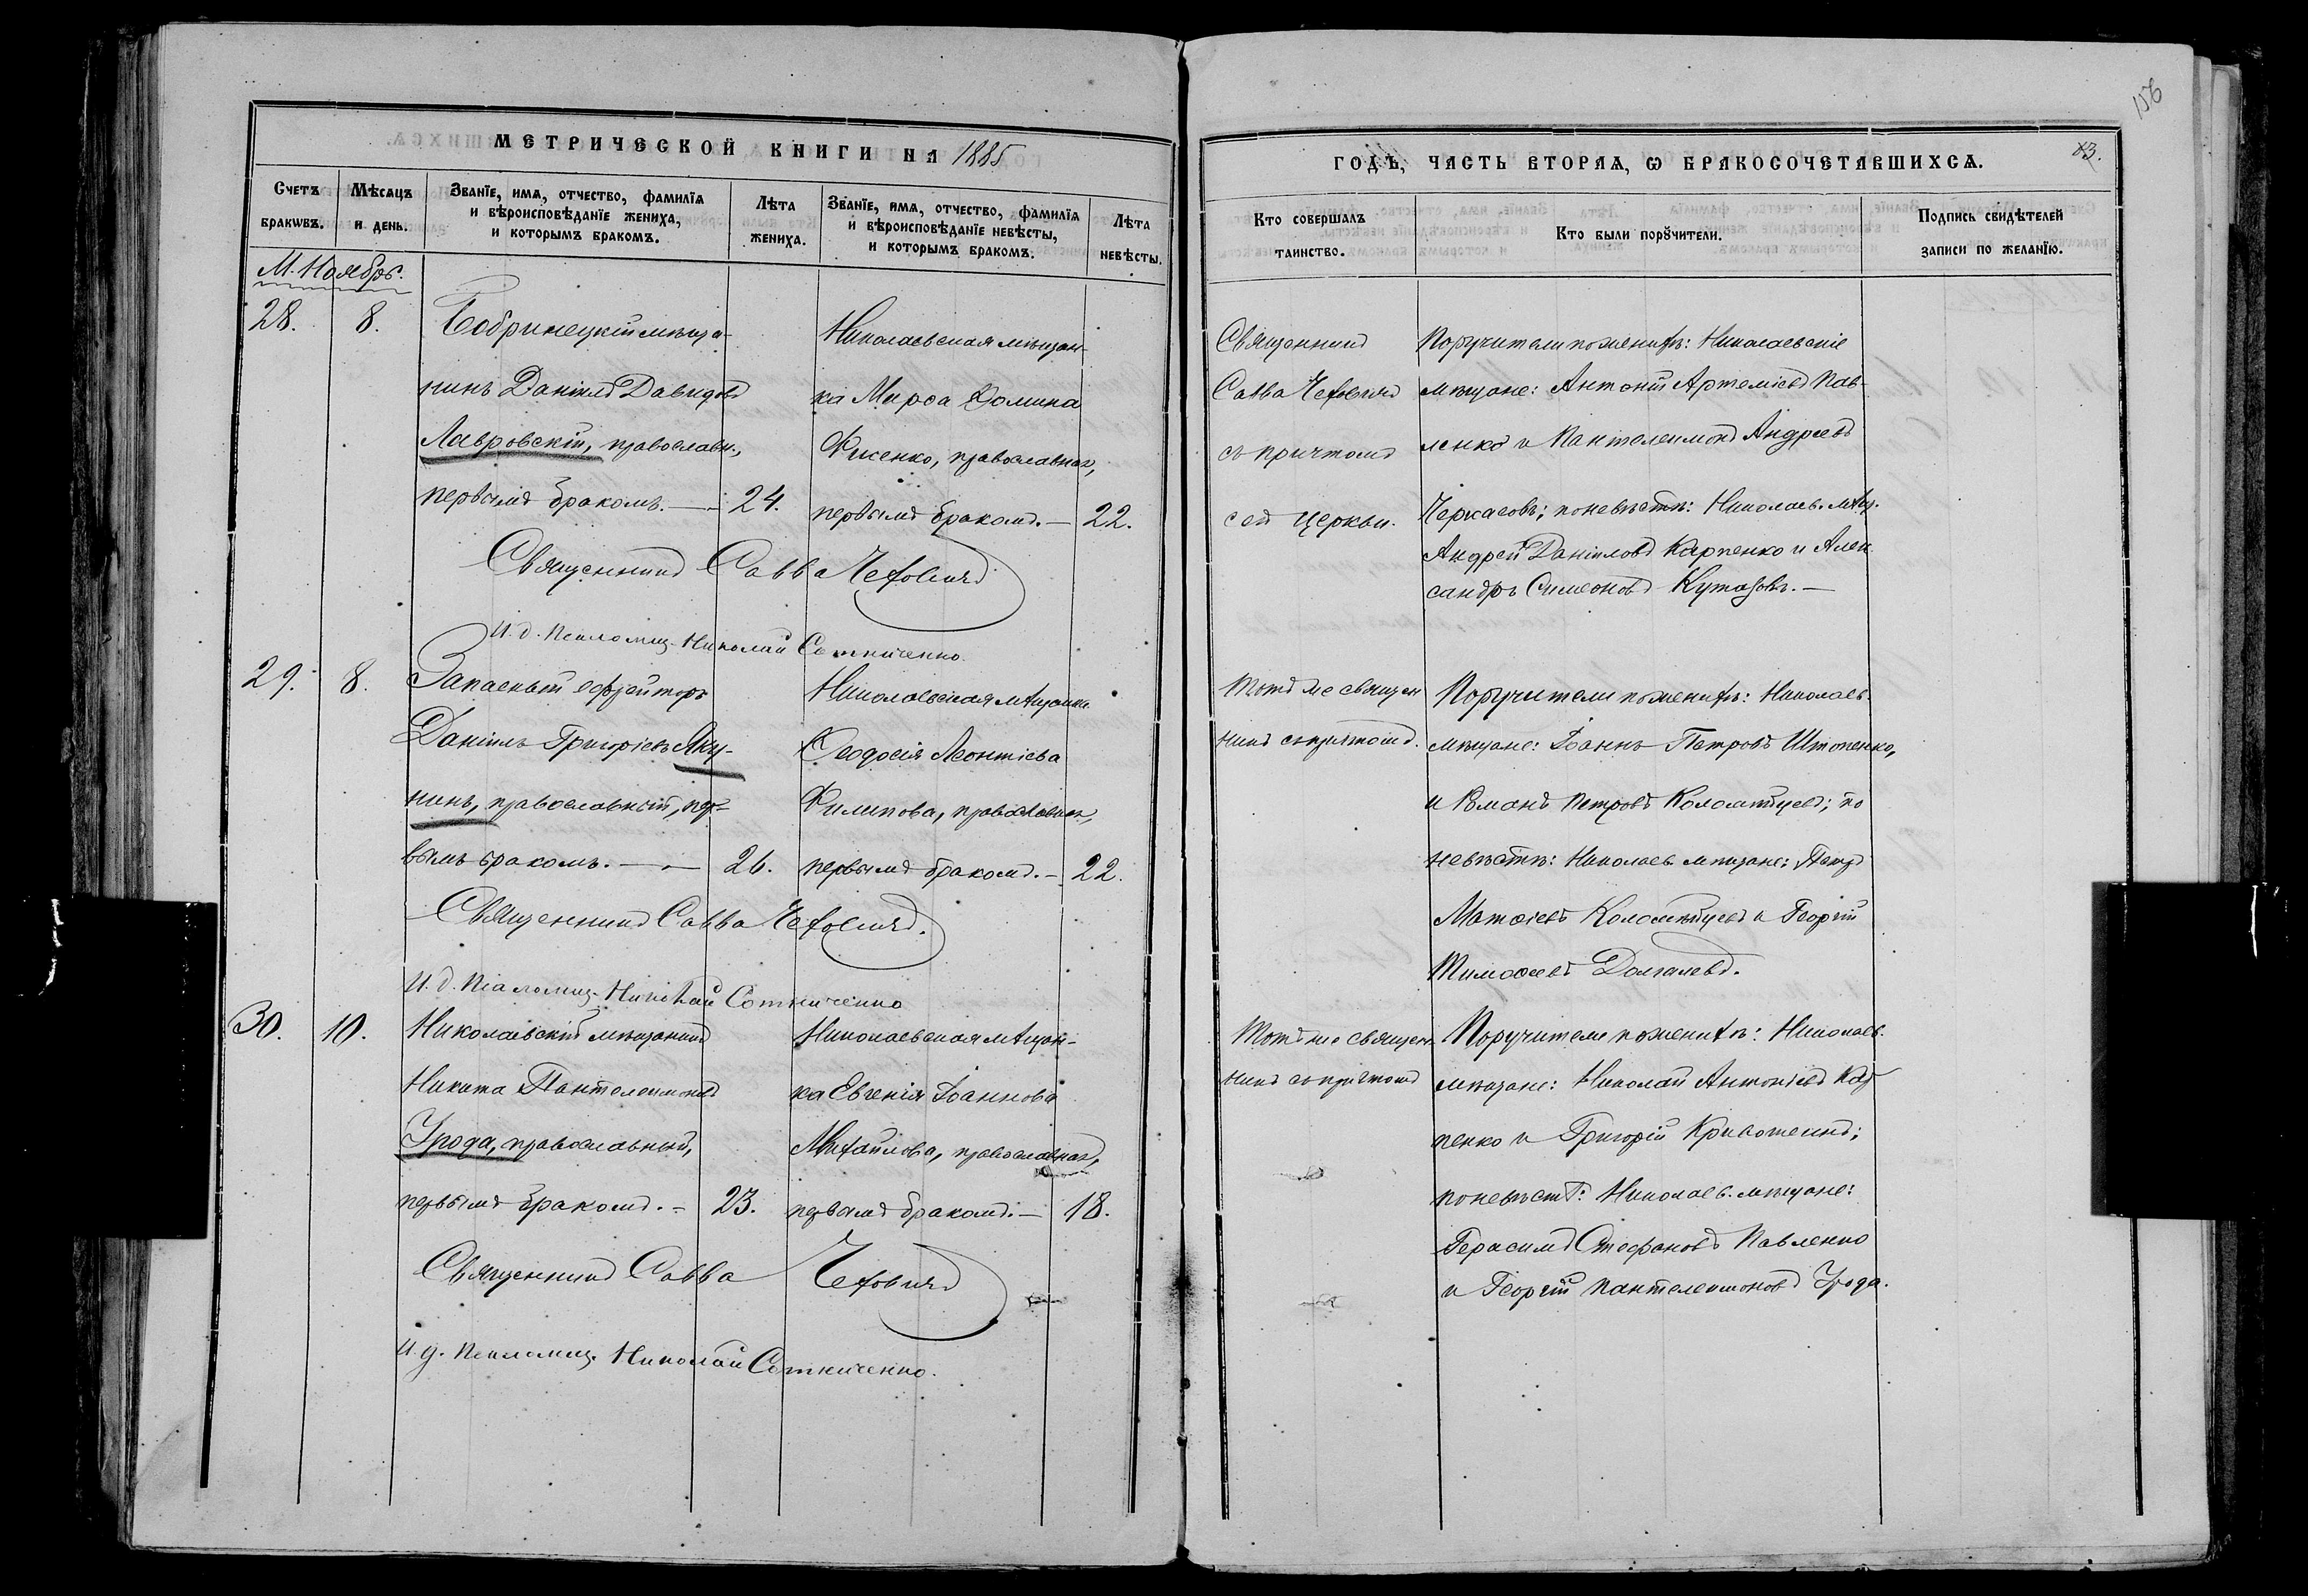 156
МЕТРИЧЕСКОЙ КНИГИ НА 1885
ГОДЪ, ЧАСТЬ ВТОРАѦ, Ѡ БРАКОСОЧЕТАВШИХСѦ.
83.
Счетъ браковъ.
Мѣсѧцъ и день.
Званїе, имѧ, отчество, фамилїѧ
и вѣроисповѣданїе жениха,
и которымъ бракомъ.
Лѣта жениха.
Званїе, имѧ, отчество, фамилїѧ
и вѣроисповѣданїе невѣсты,
и которымъ бракомъ.
Лѣта невѣсты.
Кто совершалъ таинство.
Кто были порꙋчители.
Подпись свидѣтелей
записи по желанїю.
М. Ноябрь.
28.
8.
Бобринецкій мѣща-
нинъ Даніилъ Давидовъ
Лавровскій, православн.,
первымъ бракомъ. —
24.
Николаевская мѣщан-
ка Марѳа Ѳомина
Фисенко, православная,
первымъ бракомъ. —
22.
Священникъ
Савва
съ причтомъ
сей церкви.
Поручители по женихѣ: Николаевскіе
мѣщане: Антоній Артеміевъ Пав-
ленко и Пантелеимонъ Андреевъ
Черкасовъ; по невѣстѣ: Николаев. мѣщ.
Андрей Даніиловъ Карпенко и Алек-
сандръ Симеоновъ Кутазовъ. —
Священникъ Савва
И. д. псаломщ. Николай Сотниченко.
29.
8.
Запасный ефрейторъ
Даніилъ Григоріевъ Яку-
нинъ, православный, пер-
вымъ бракомъ. —
26.
Николаевская мѣщанка
Ѳеодосія Леонтіева
Филипова, православная,
первымъ бракомъ. —
22.
Тотъ же священ
никъ съ причтомъ.
Поручители по женихѣ: Николаев.
мѣщане: Іоаннъ Петровъ Штопенко,
и Романъ Петровъ Коломѣйцевъ; по
невѣстѣ: Николаев. мѣщане: Петръ
Матѳіевъ Коломѣйцевъ и Георгій
Тимоѳеевъ Долгалевъ.
Священникъ Савва
И. д. псаломщ. Николай Сотниченко
30.
10.
Николаевскій мѣщанинъ
Никита Пантелеимоновъ
Урода, православный,
первымъ бракомъ. —
23.
Николаевская мѣщан-
ка Евгенія Іоаннова
Михайлова, православная,
первымъ бракомъ. —
18.
Тотъ же священ
никъ съ причтомъ
Поручители по женихѣ: Николаев.
мѣщане: Николай Антоніевъ Кар
пенко и Григорій
по невѣстѣ: Николаев. мѣщане:
Герасимъ Стефановъ Павленко
и Георгій Пантелеимоновъ Урода.
Священникъ Савва
И. д. псаломщ. Николай Сотниченко.